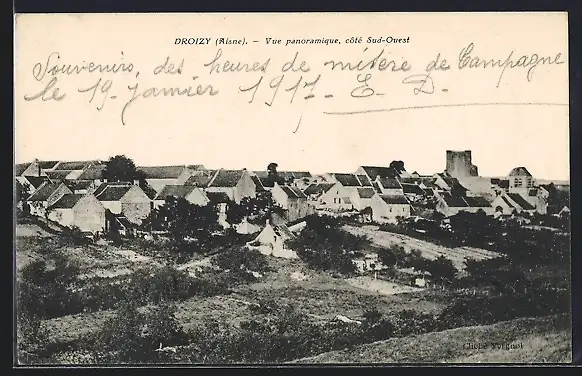 DROIZY (Aisne). - Vue panoramique, côté Sud-Ouest
Souvenirs, des heures de misère de Campagne
le 19 Janvier 1917- E. D.
Cliché Vergnol